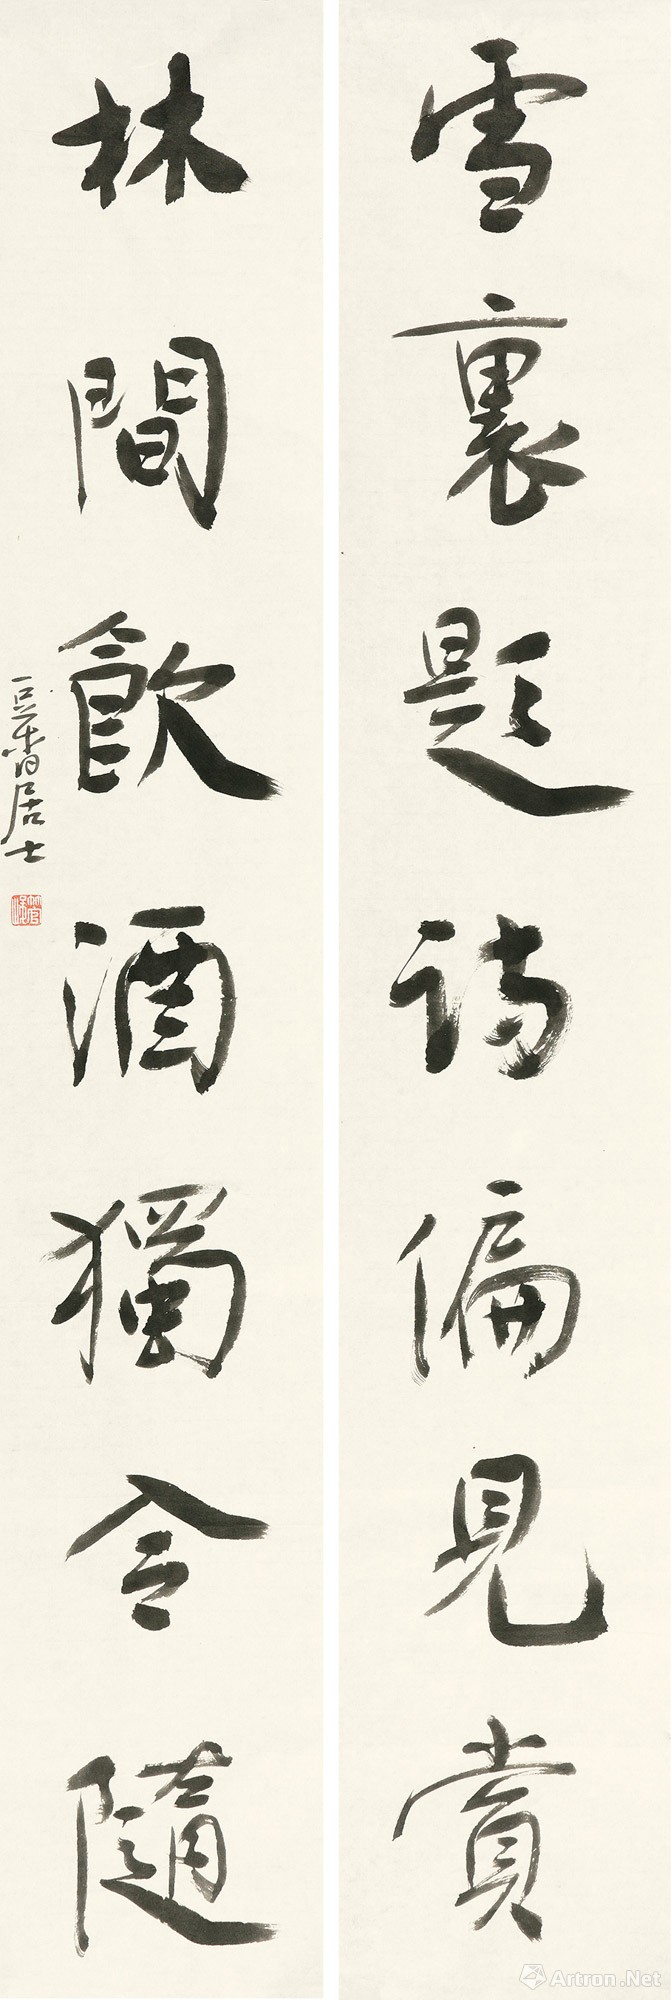 雪裏題詩偏見賞
林間飲酒獨令隨
豆香居士
Artron.Net